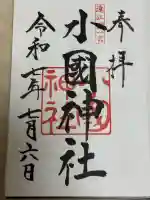 奉拝
遠江國一宮
小國神社
令和七年七月六日